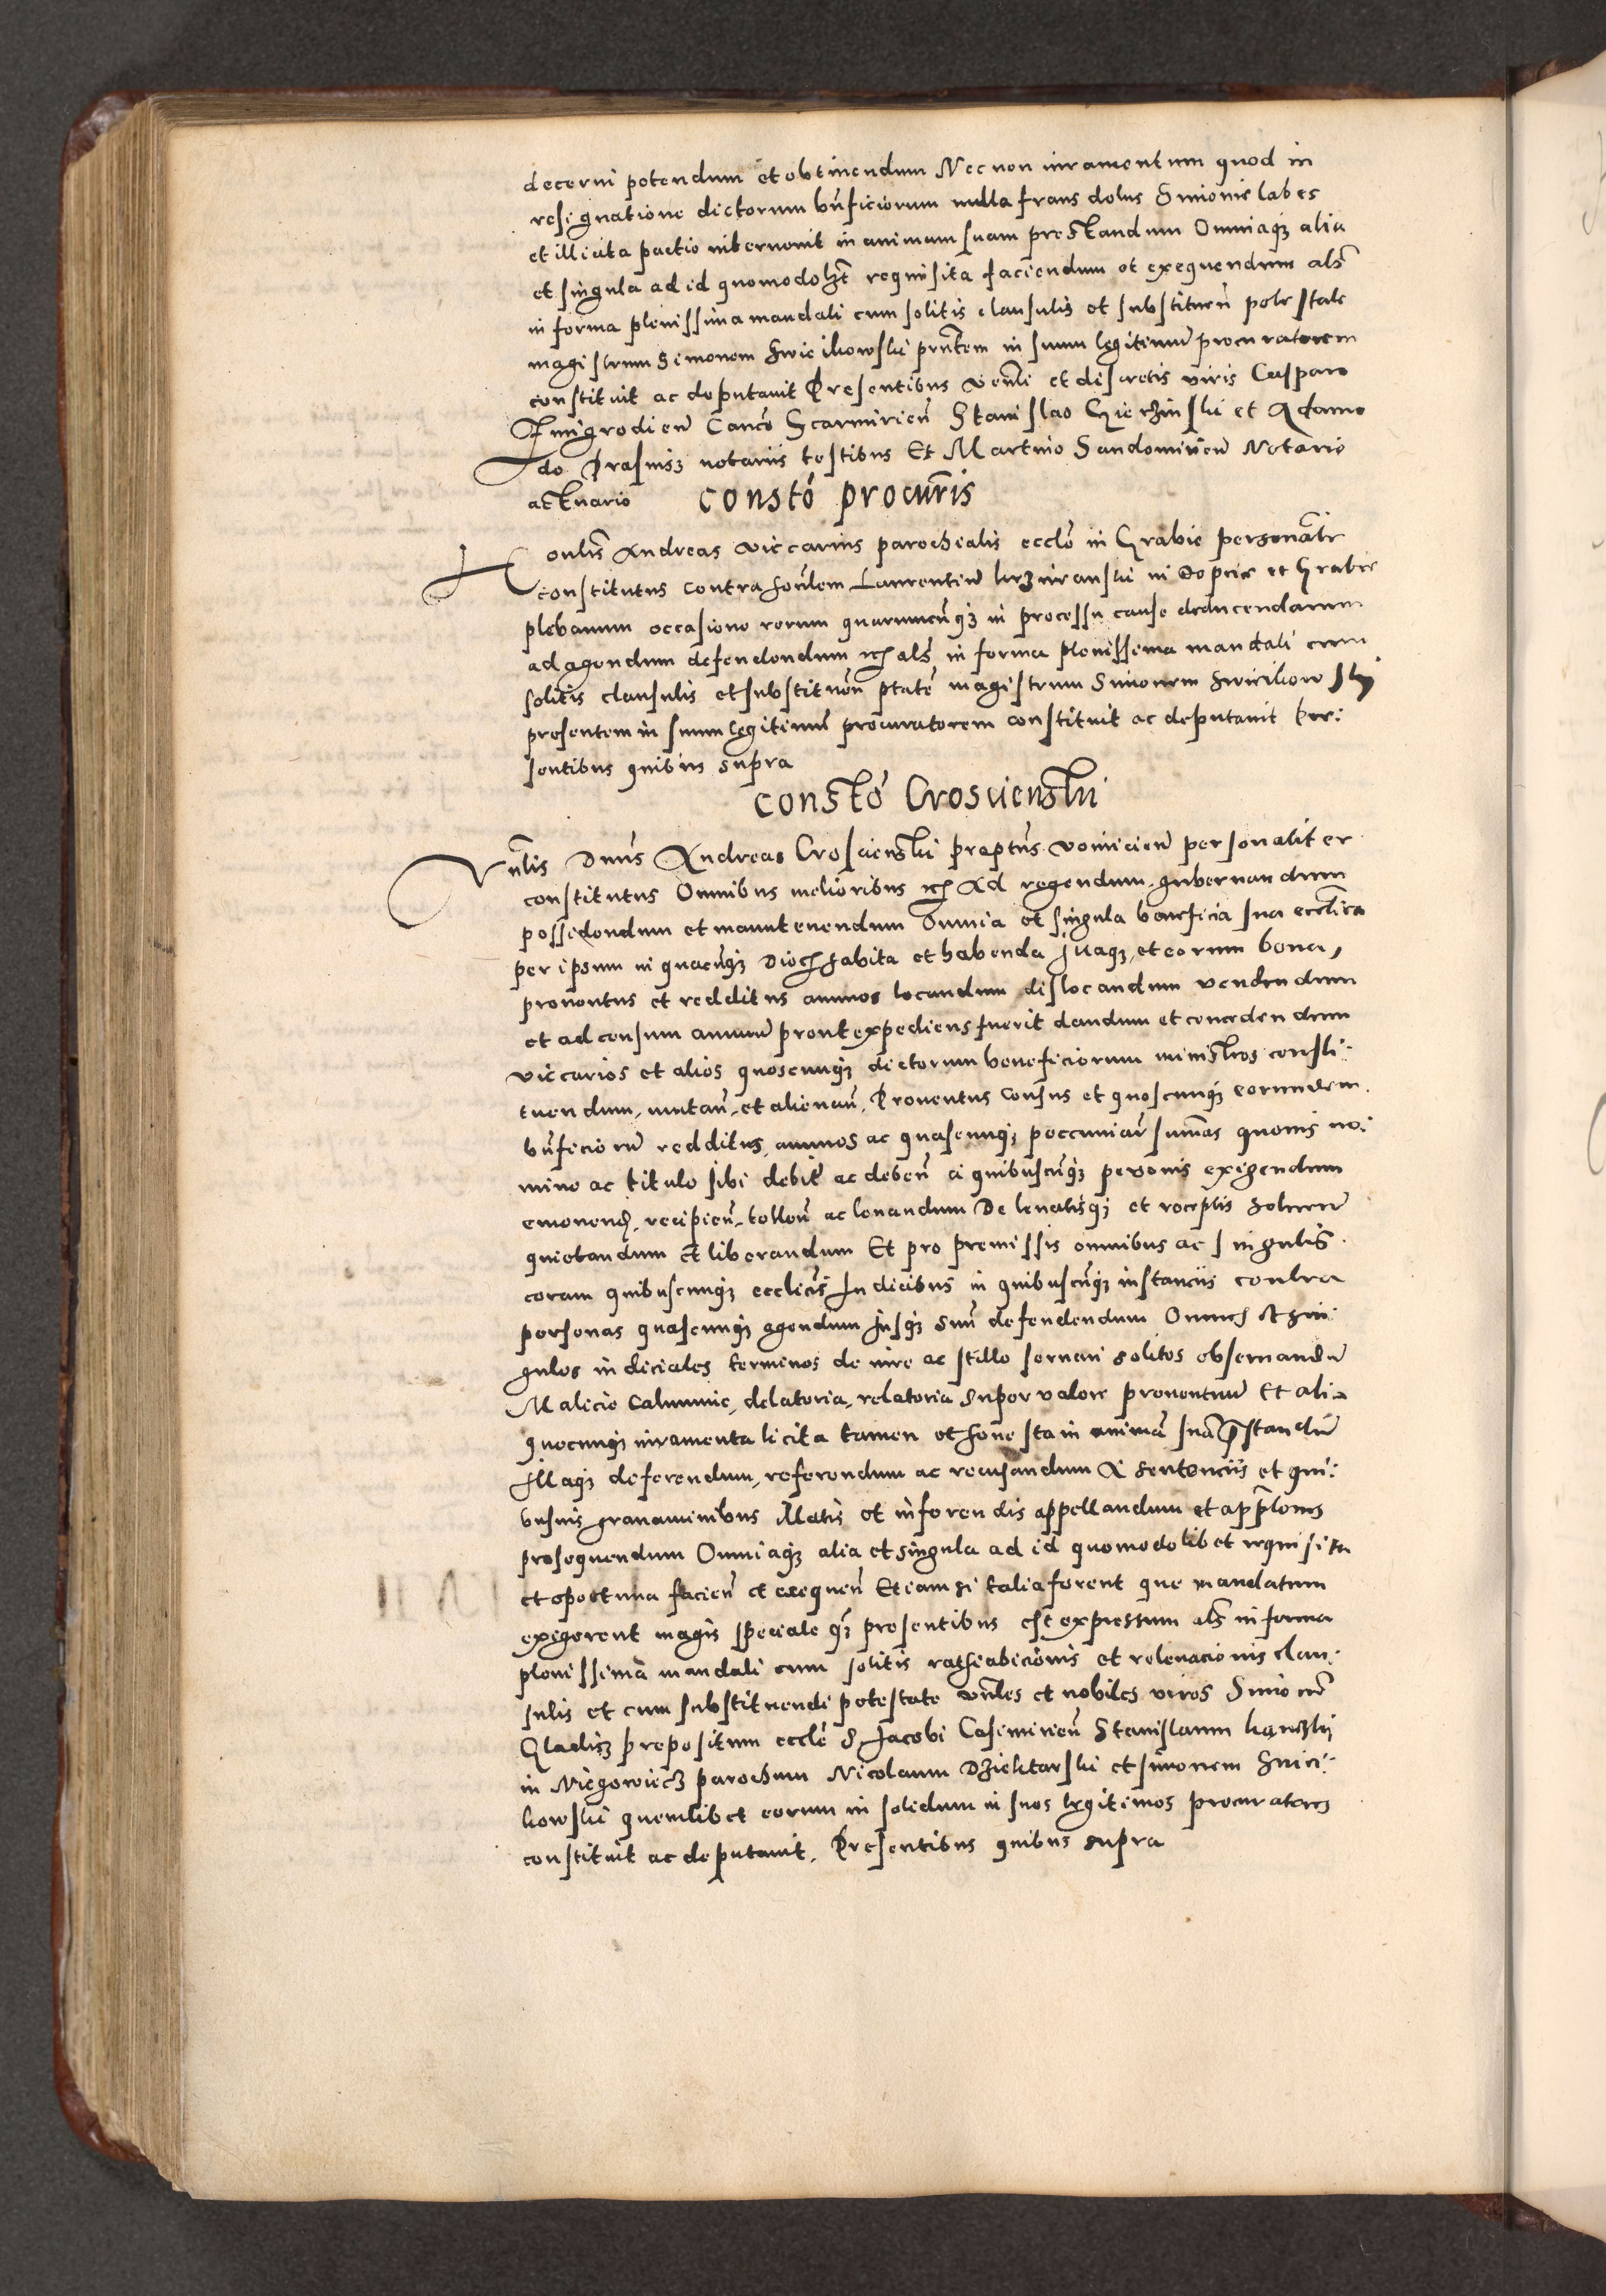 decerni petendum et obtinendum Nec non iuramentum quod in
resignatione dictorum bnficiorum nulla fraus dolus Simonis labes
et illicita pactio intervenit in animam suam prestandum Omniaqz alia
et singula ad id quomodolzt requisita faciendum et exequendum als
in forma plenissima mandati cum solitis clausulis et substituen potestate
magistrum Simonem prntem in suum legitimu procuratorem
constituit ac deputavit Presentibus venli et discretis viris Caspare
Canco Scarmirien Stanislao et Adamo
de notariis testibus Et Martino Sandomirien Notario
actuario Consto procuris
Honlis Andreas viccarius parochialis eccle in Grabie personalr
constitutus contra honlem Laurentiu in et Grabie
plebanum occasione rerum quarumcunqz in processu cause deducendarum
ad agendum defendendum als in forma plenissima mandati cum
solitis clausulis et substituen ptate magistrum Simonem
presentem in suum legitimu procuratorem constituit ac deputavit Pre:
sentibus quibus supra
Consto Croscienski
Vnlis Dnus Andreas Croscienski preptus voinicien personaliter
constitutus Omnibus melioribus Ad regendum gubernandum
possidendum et manutenendum Omnia et singula beneficia sua ecclica
per ipsum in quacunqz Dioc habita et habenda suaqz et eorum bona,
proventus et redditus annuos locandum dislocandum vendendum
et ad censum annuu prout expediens fuerit dandum et concedendum
viccarios et alios quoscunqz dictorum beneficiorum ministros consti:
tuendum, mutan, et alienan, Proventus Census et quoscunqz eorumdem
bnficioru redditus, annuos ac quascunqz peccuniar summas quovis no:
mine ac titulo sibi debit ac deben a quibuscunqz personis exigendum
emonend, recipien, tollen ac levandum De levatisqz et receptis solven
quietandum et liberandum Et pro premissis omnibus ac singulis
coram quibuscunqz ecclicis Iudicibus in quibuscunqz instanciis contra
personas quascunqz agendum Iusqz suu defendendum Omnes et sin:
gulos iudiciales terminos de iure ac stillo servari solitos observandu
Malicie Calumnie, delatoria, relatoria super valore proventuu Et alia
quecunqz iuramenta licita tamen et honesta in anima sua prestandu
Illaqz deferendum, referendum ac recusandum A sentenciis et qui:
busvis gravaminibus illatis et inferendis appellandum et applones
prosequendum Omniaqz alia et singula ad id quomodolibet requisita
et oportuna facien et exequen Etiam si talia forent que mandatum
exigerent magis speciale qz presentibus est expressum als in forma
plenissima mandati cum solitis rathiabicionis et relevacionis clau:
sulis et cum substituendi potestate vnles et nobiles viros Simone
prepositum eccle S Jacobi Casimirien Stanislaum
in parochum Nicolaum et Simonem
quemlibet eorum in solidum in suos legitimos procuratores
constituit ac deputavit. Presentibus quibus supra